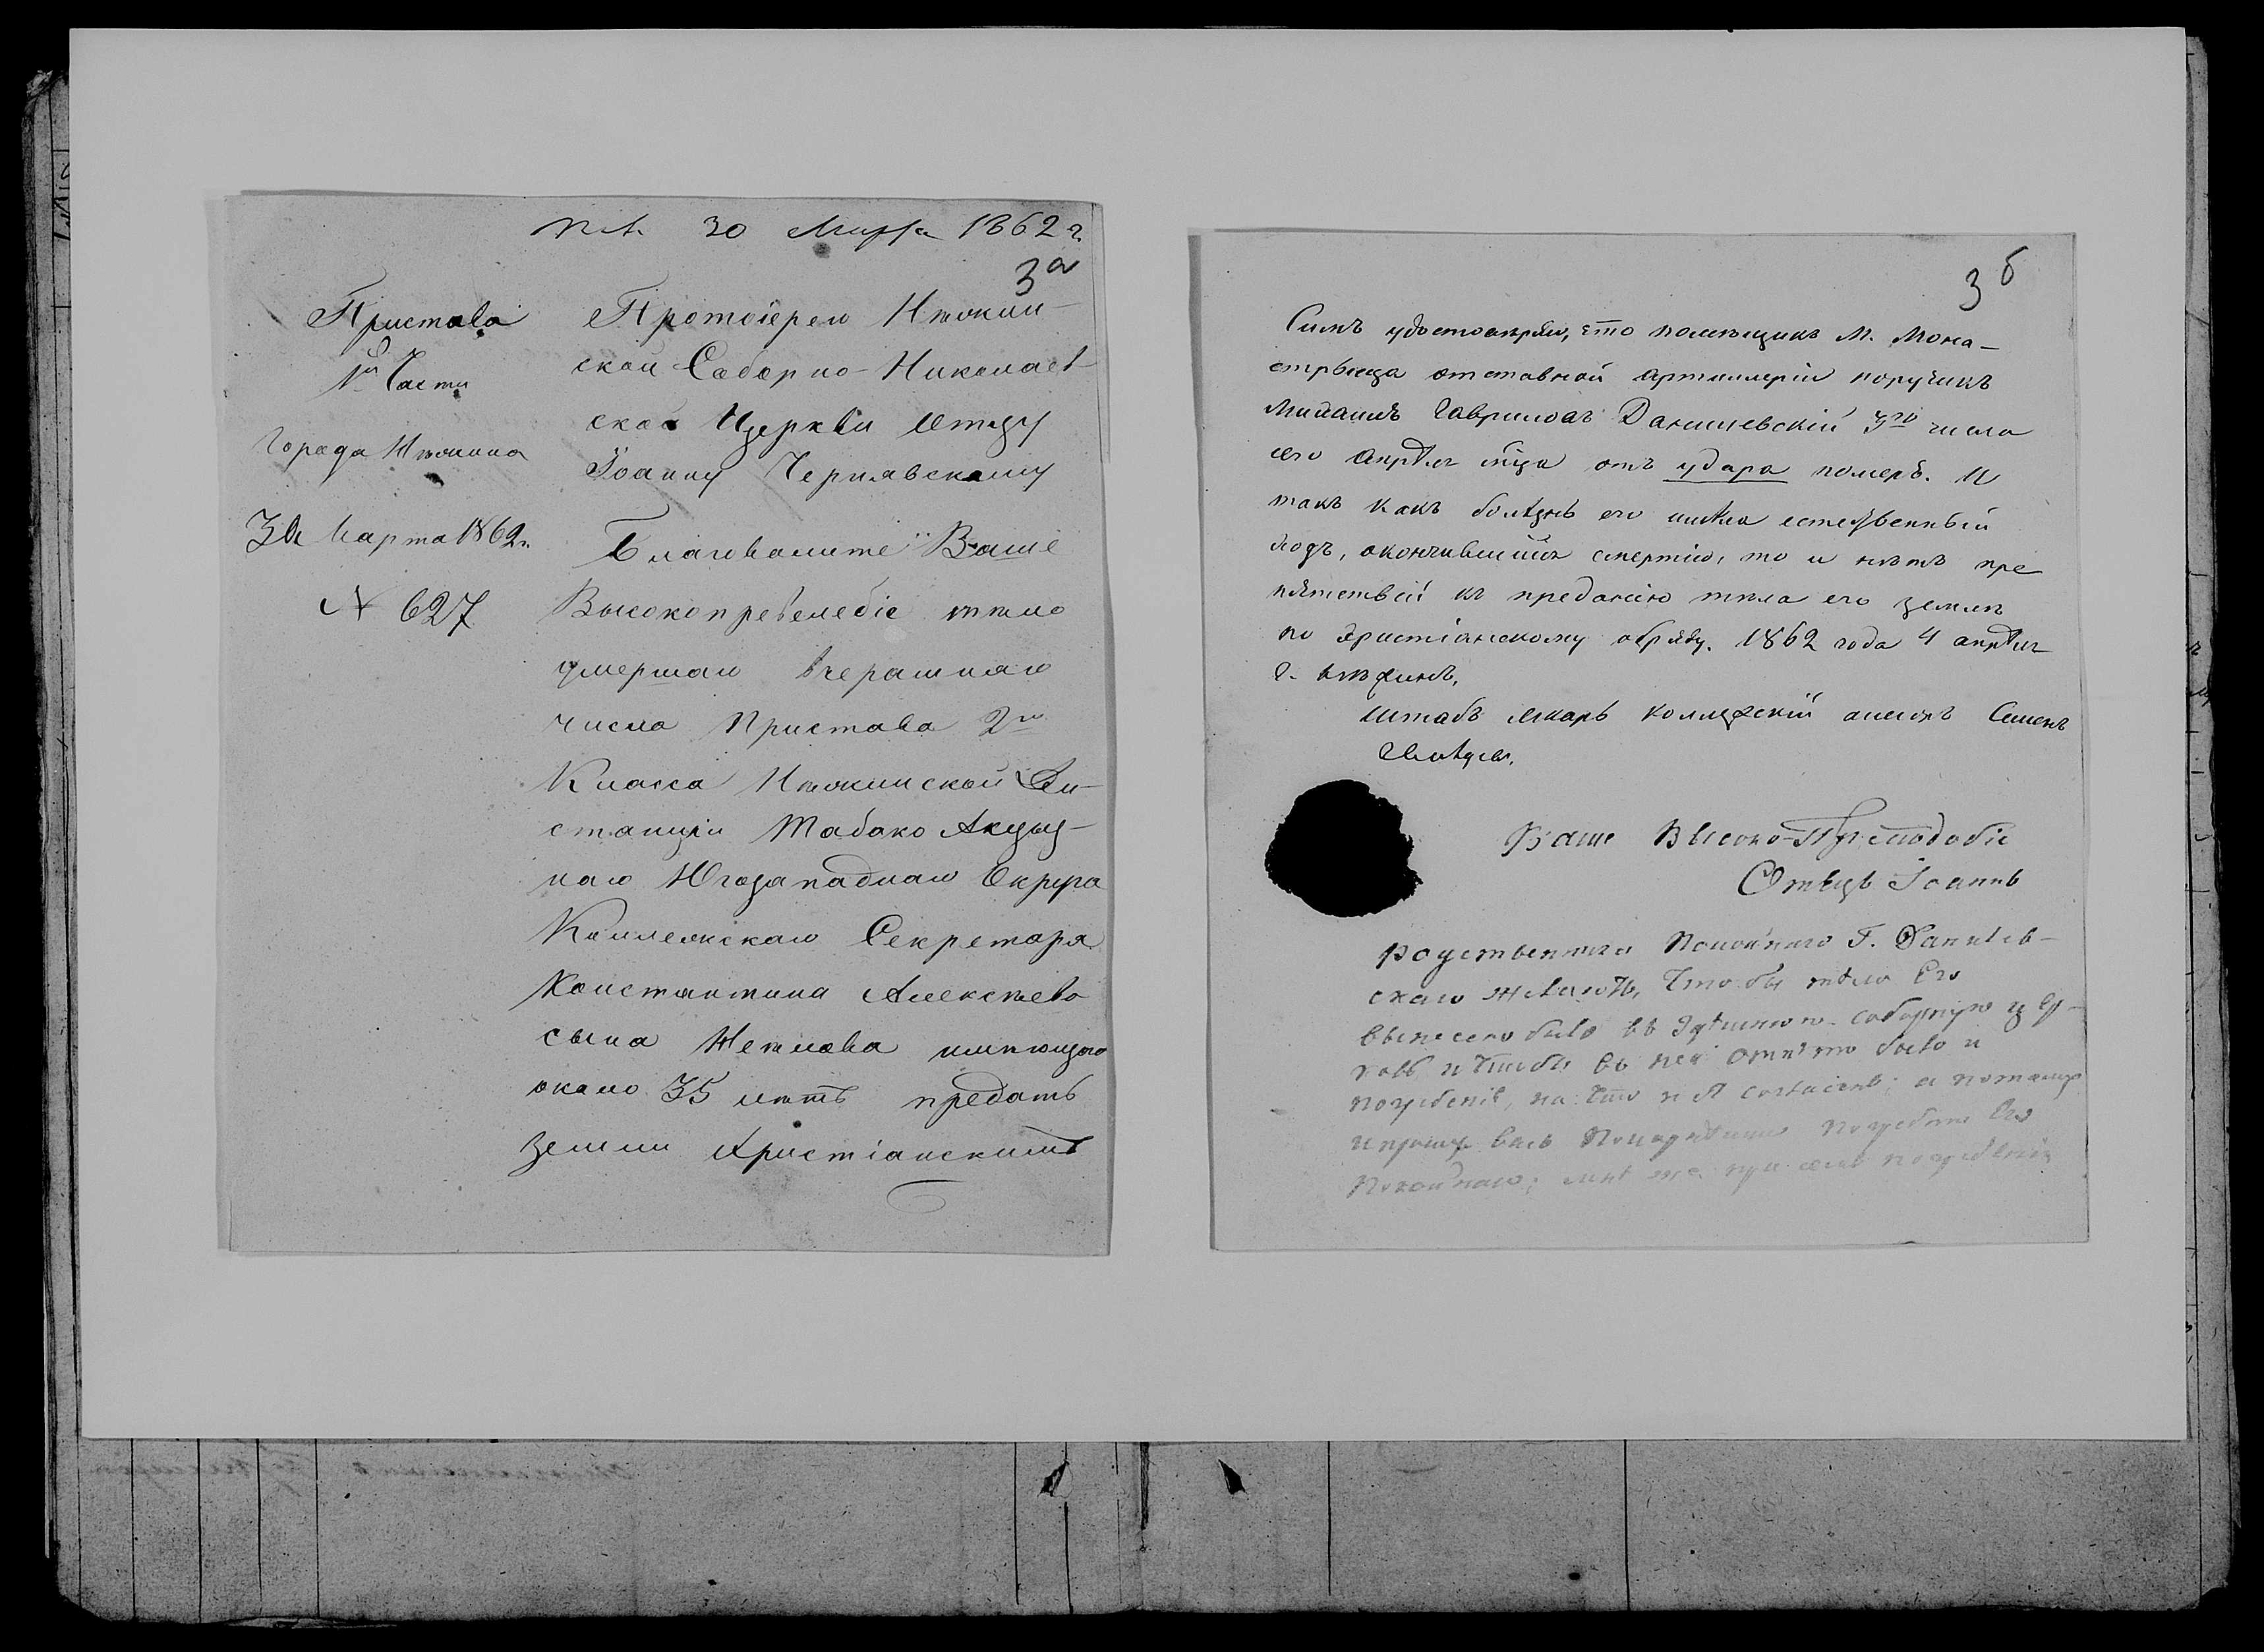 30 Марта 1862 г.
3а
Пристава
1й Части
Города Нѣжина
30 Марта 1862 г.
№ 627
Протоіерею Нѣжин-
ской Соборно-Николаев-
ской Церкви Отцу
Іоанну Чернявскому
Благоволите Ваше
Высокопреподобіе тѣло
умершаго вчерашняго
числа Пристава 2го
Класса Нѣжинской Ди-
станціи Табако Акцыз-
наго Югозападнаго Округа
Коллежскаго Секретаря
Константина Алексѣева
сына имѣющаго
около 35 лѣтъ предать
земли Христіанскимъ
3б
Симъ удостовѣряю, что помѣщикъ М. Мона-
стрыща отставной артиллеріи поручикъ
Михаилъ Гавриловъ Данилевскій 3го числа
сего апрѣля мѣца отъ удара померъ. И
такъ какъ болѣзнь его имѣла естественный
ходъ, окончившійся смертію, то и нѣтъ пре
пятствій къ преданію тѣла его землѣ
по христіанскому обряду. 1862 года 4 апрѣля
г. Нѣжинъ.
Штабъ лѣкарь коллежскій Семенъ
Ваше Высоко-Преподобіе
Отецъ Іоаннъ
Родственники Покойнаго Г. Данилев-
скаго желаютъ, чтобы тѣло Его
вынесено было въ здѣшнюю соборную цер-
ковь и чтобы въ ней отпѣто было и
погребеніе, на что и я согласенъ; а потому
и прошу васъ погребсти Его
Покойнаго; мнѣ же при семъ погребеніи